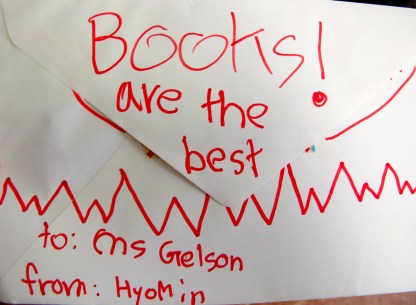 Books!
are the
best
to: Ms Gelson
from: HyoMin